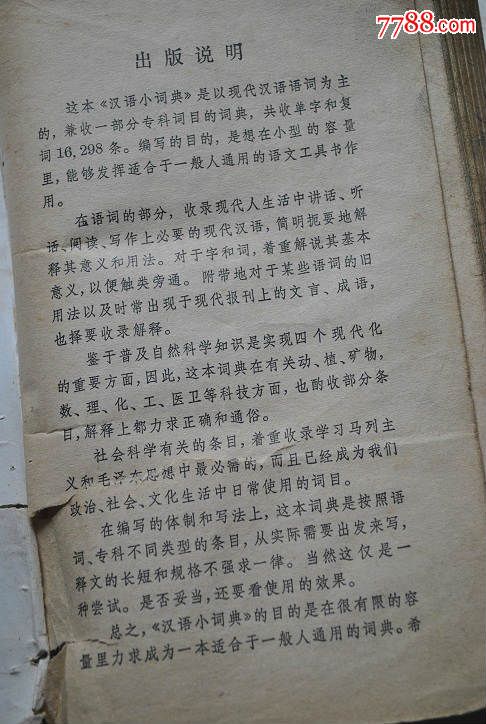 7788.com
出版说明
这本《汉语小词典》是以现代汉语语词为主
的，兼收一部分专科词目的词典，共收单字和复
词16,298条。编写的目的，是想在小型的容量
里，能够发挥适合于一般人通用的语文工具书作
用。
在语词的部分，收录现代人生活中讲话、听
话、阅读、写作上必要的现代汉语，简明扼要地解
释其意义和用法。对于字和词，着重解说其基本
意义，以便触类旁通。附带地对于某些语词的旧
用法以及时常出现于现代报刊上的文言、成语，
也择要收录解释。
鉴于普及自然科学知识是实现四个现代化
的重要方面，因此，这本词典在有关动、植、矿物，
数、理、化、工、医卫等科技方面，也酌收部分条
目，解释上都力求正确和通俗。
社会科学有关的条目，着重收录学习马列主
义和毛泽东思想中最必需的，而且已经成为我们
政治、社会、文化生活中日常使用的词目。
在编写的体制和写法上，这本词典是按照语
词、专科不同类型的条目，从实际需要出发来写，
释文的长短和规格不强求一律。当然这仅是一
种尝试。是否妥当，还要看使用的效果。
总之，《汉语小词典》的目的是在很有限的容
量里力求成为一本适合于一般人通用的词典。希